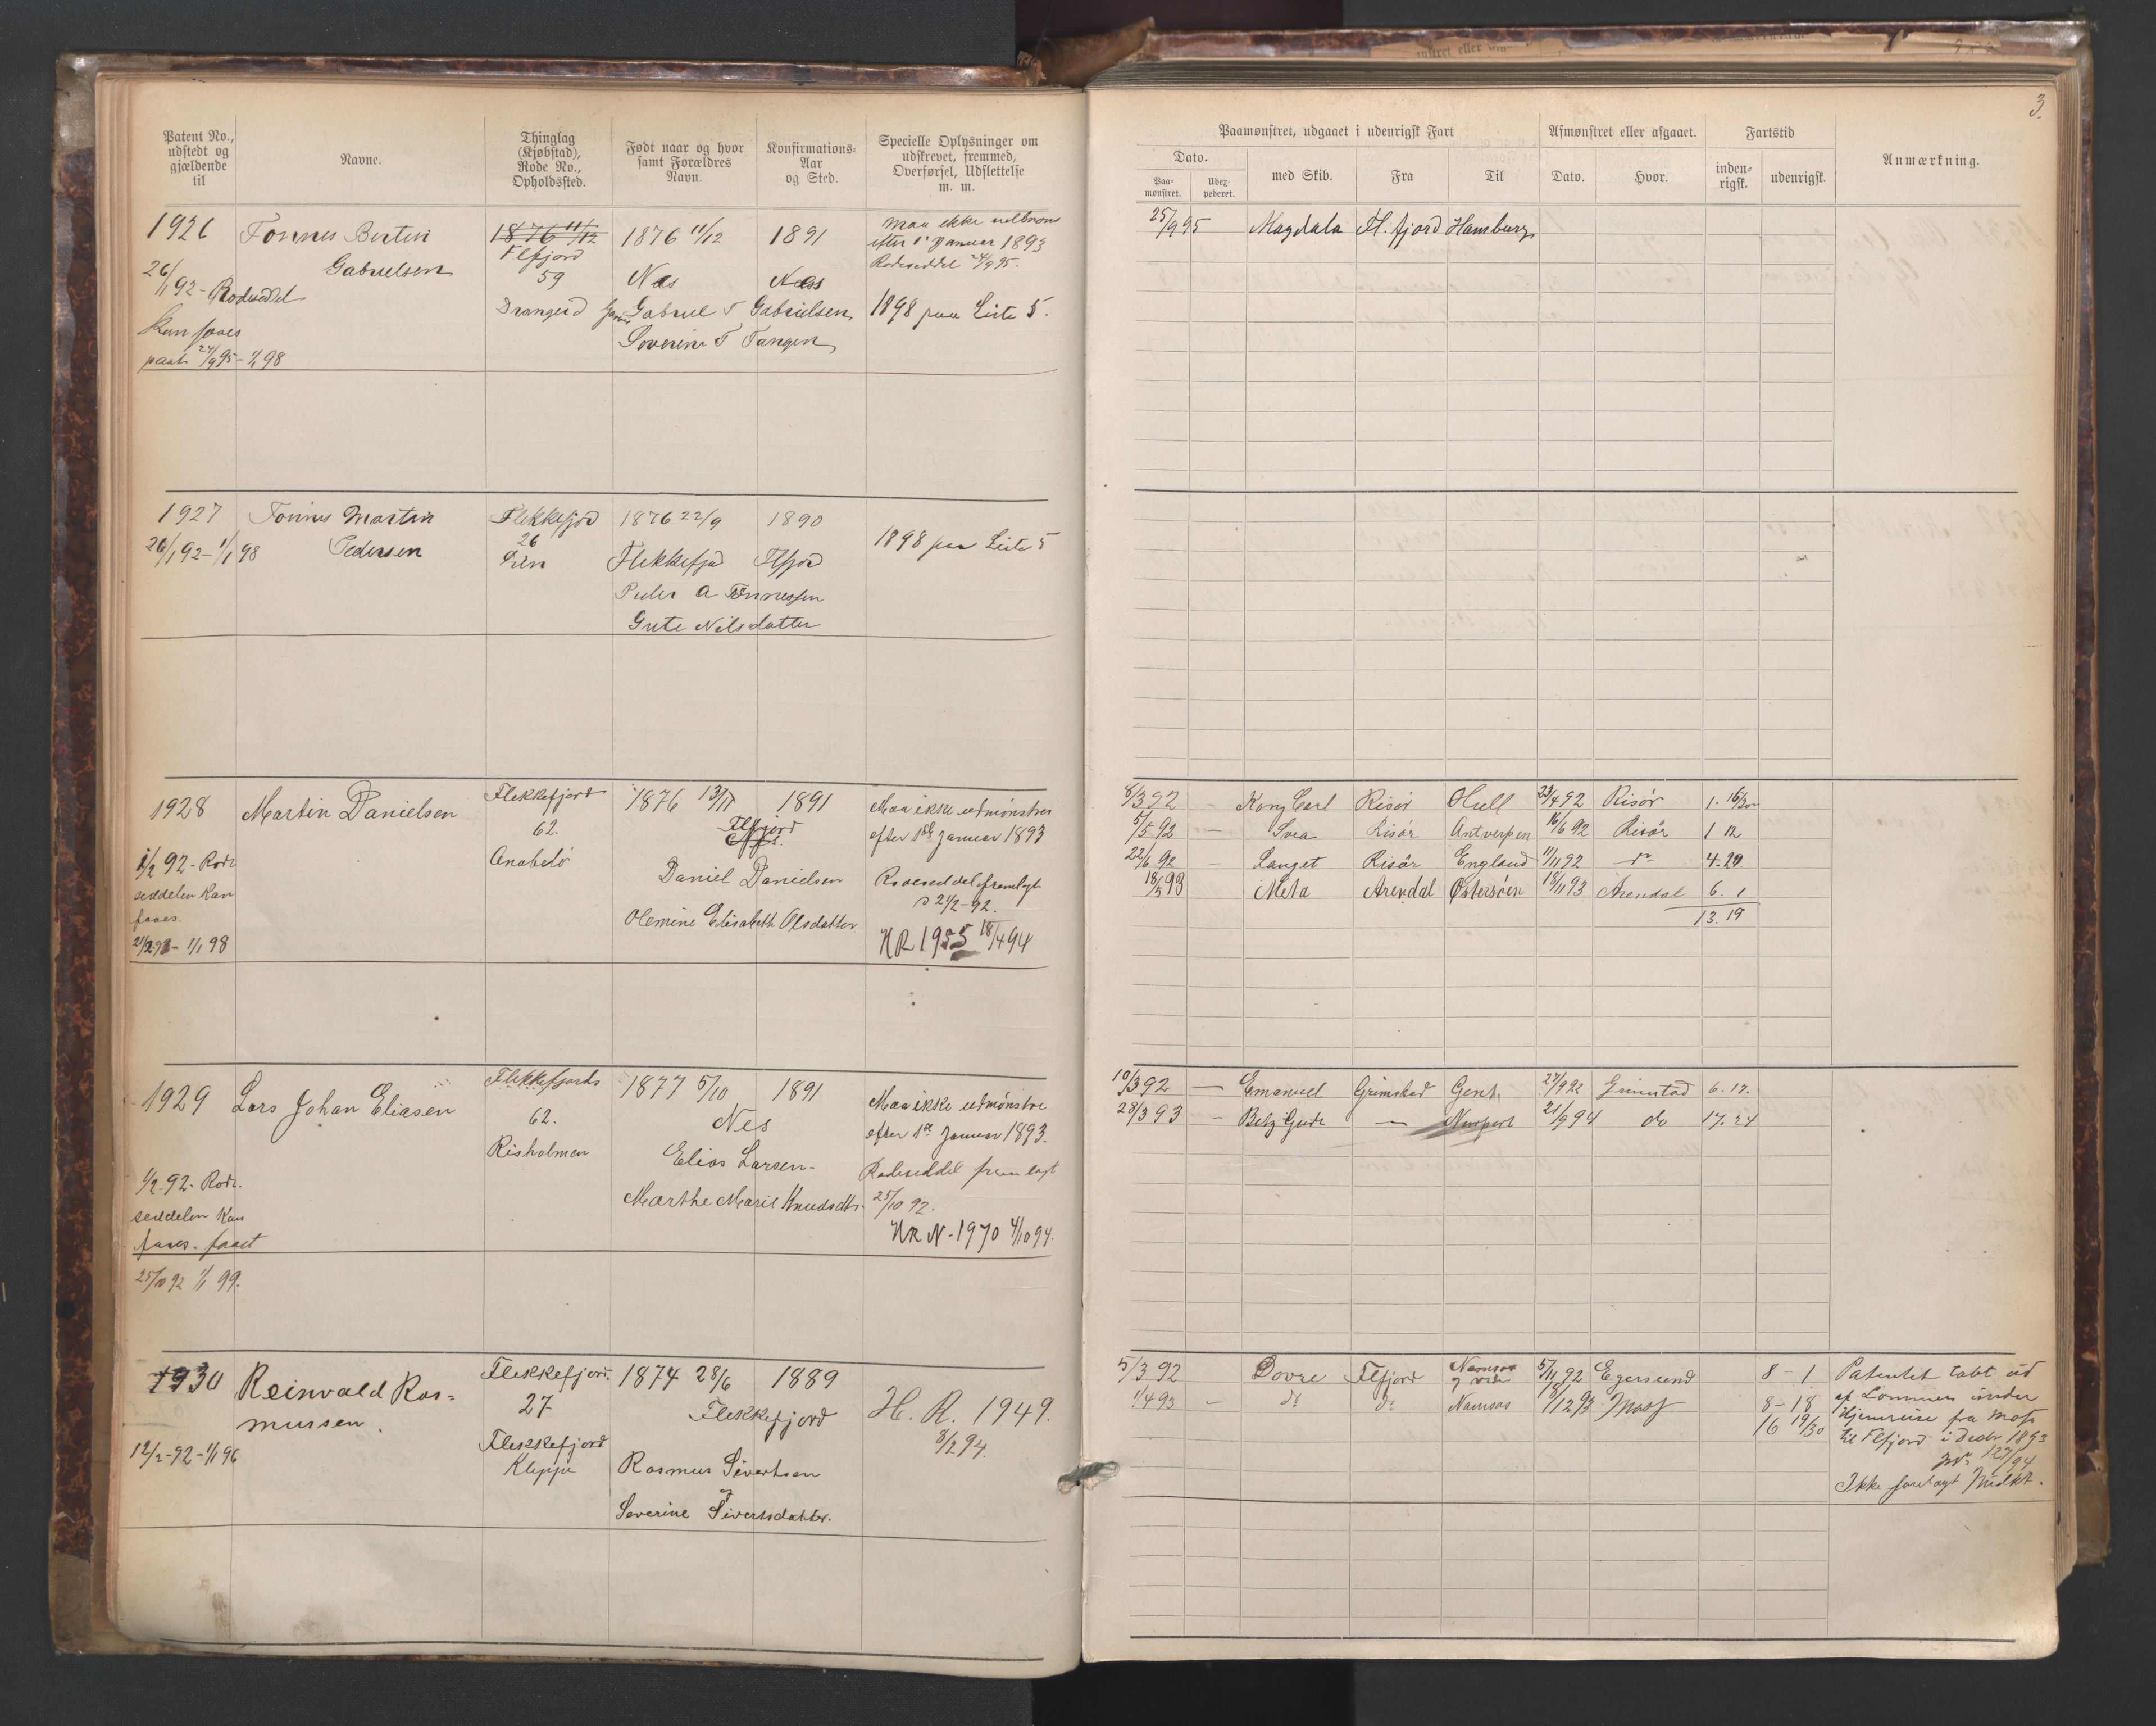 3.
Patent No., udstedt og gjældende til
Navne.
Thinglag (Kjøbstad), Rode No., Opholdssted.
Født naar og hvor samt Forældres Navn.
Konfirmations-Aar og Sted.
Specielle Oplysninger om udskrevet, fremmed, Overførsel, Udslettelse m. m.
Paamønstret, udgaaet i udenrigsk Fart
Dato.
Paa-mønstret.
Uder-pederet.
med Skib.
Fra
Til
Afmønstret eller afgaaet.
Dato.
Hvor.
Fartstid
inden-rigsk.
udenrigsk.
Anmærkning.
1926
Tønnes Bertin
Gabrielsen
26/1 92 - Rodeseddel
Kan faaes
paat. 24/9 95 - 1/1 98
1876 11/12
Flfjord
59
Drangeid
1876 11/12
1891
Næs
Næs
Gabriel T Gabrielsen
Severine T Tangen
Maa ikke udmønst
efter 1 Januar 1893
Rodeseddel 24/9 95.
1898 paa Liste 5.
25/9 95 Magdala Fl.fjord Hamburg
1927
Tønnes Martin
Pedersen
26/1 92 - 1/1 98
Flekkefjord
26
1876 22/9
1890
Flekkefjord
Flfjord
Peder A Tønnessen
Grete Nilsdatter
1898 paa Liste 5
1928
Martin Danielsen
1/2 92 - Rode
seddelen Kan
faaes.
21/2 92 - 1/1 98
Flekkefjord
62.
Anabelø
1876 13/11
1891
Flfjord
Daniel Danielsen
Olemine Elisabeth Olsdatter
Maa ikke udmønstres
efter 1ste Januar 1893
Rodeseddel fremlagt
21/2-92.
HR 1955 18/4 94
8/3 92 - Kong Carl Risør Hull 23/4 92 Risør 1. 16/30
5/5 92 - Svea Risør Antverpen 16/6 92 Risør 1 12
22/6 92 - Langet Risør England 11/11 92 do 4.20
18/5 93 Meta Arendal Østersøen 18/11 93 Arendal 6. 1
13.19
1929
Lars Johan Eliasen
1/2 92 - Rode
seddelen Kan
faaes. faaet
25/10 92 1/1 99.
Flekkefjords
62.
Risholmen
1877 5/10
1891
Nes
Elias Larsen -
Marthe Marie Knudsdtr.
Maa ikke udmønstre
efter 1ste Januar 1893.
Rodeseddel fremlagt
25/10 92.
HR N - 1970 4/10 94.
10/3 92 - Emanuel Grimstad Gent. 27/9 92 Grimstad 6. 17.
28/3 93 - Betzy Gude - Newport 21/9 94 do 17. 24
1930
Reinvald Ras=
mussen.
12/2-92 - 1/1 96
Flekkefjord
27
Flekkefjord
Kleppe
1874 28/6
1889
Flekkefjord
Rasmus Sivertsen
Severine Sivertsdatter.
H. R. 1949.
8/2 94.
5/3 92 Dovre Flfjord Namsos 5/11 92 Egersund 8 - 1
1/4 93 - do do Namsos 18/12 93 Moss 8 - 18
16 19/30
Patentet tabt ud
af Lommen under
Hjemreise fra Moss
til Flfjord i Decbr 1893
127/94
Ikke forelagt